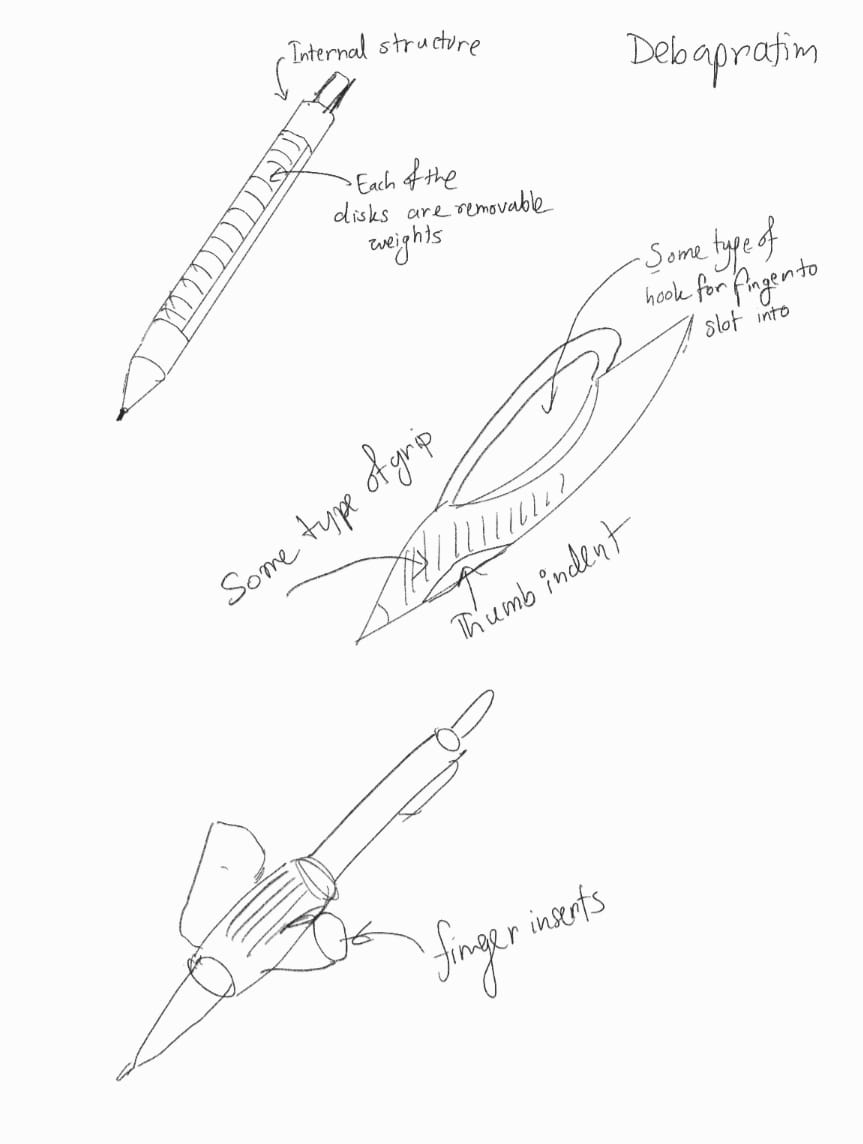 Internal structure
Debapratim
Each of the
disks are removable
weights
Some type of
hook for finger to
slot into
Some type of grip
Thumb indent
finger inserts